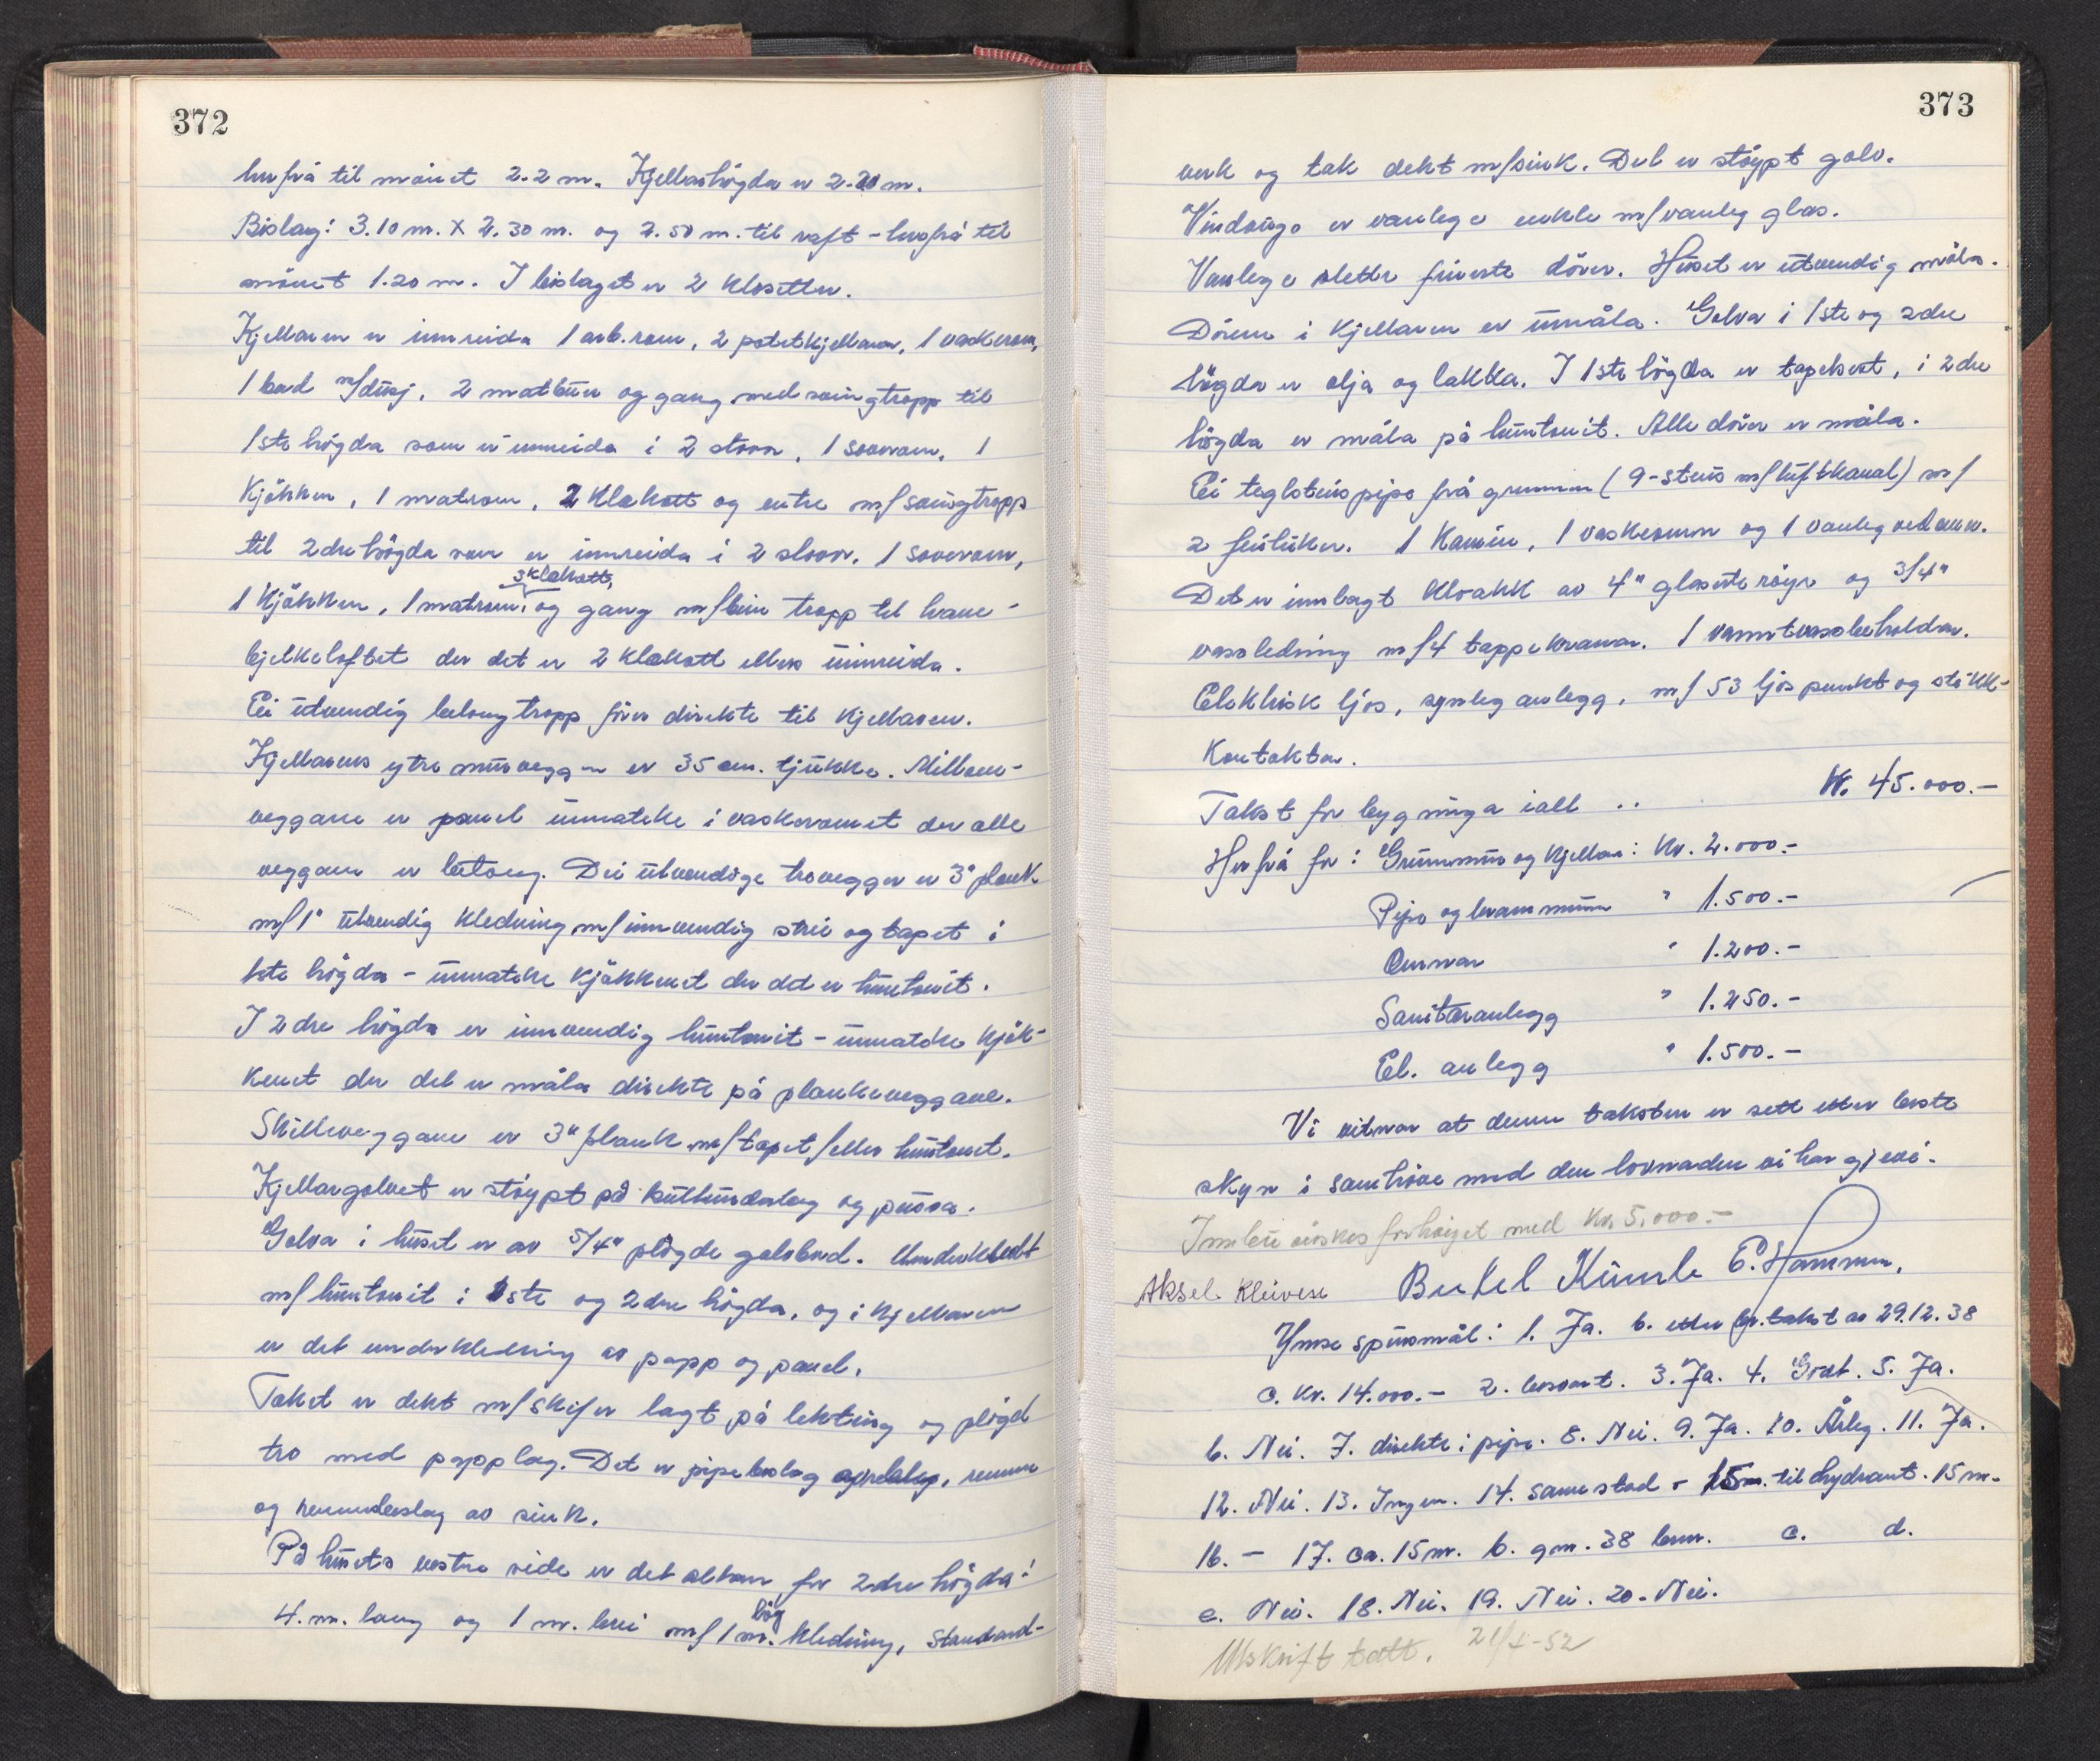 372
herfrå til mönet 2.2 m. Kjellarhögda er 2.20 m.
Bislag: 3.10 m. X 2.30 m. og 2.50 m. til raft - herfrå til
mönet 1.20 m. I bislaget er 2 klosetter.
Kjellaren er innreida 1 arb.rom, 2 potetkjellarar, 1 vaskerom,
1 bad m/dusj, 2 matbuer og gang med svingtropp til
1ste högda som er innreida i 2 stovor, 1 soverom, 1
Kjökken, 1 matrom, 2 klekott og entre m/svingtropp
til 2dre högda som er innreida i 2 stovor, 1 soverom,
3 klekott,
1 kjökken, 1 matrom, og gang m/bein tropp til hane-
bjelkeloftet der det er 2 klekott ellers uinnreida.
Ei utvendig betongtropp förer direkte til kjellaren.
Kjellarens ytre murveggar er 35 cm. tjukke. Millom-
veggane er panel unnateke i vaskeromet der alle
veggane er betong. Dei utvendige trevegger er 3" plank
m/1" utvendig kledning m/innvendig strie og tapet i
1ste högda - unnateke kjökkenet der det er huntonit.
I 2dre högda er innvendig huntonit - unnateke kjök-
kenet der det er måla direkte på plankeveggane.
Skilleveggane er 3" plank m/tapet/eller huntonit.
Kjellargolvet er stöypt på kultunderlag og pussa.
Golva i huset er av 5/4" plögde golvbord. Underkledt
m/huntonit i 1ste og 2dre högda, og i kjellaren
er det underkledning av papp og panel.
Taket er dekt m/skifer lagt på lekting og plögd
tro med papplag. Det er pipebeslag, renner
og rennebeslag av sink.
På husets vestre side er det altan for 2dre högda:
hög
4. m. lang og 1 m. brei m/1 m. kledning, standard-
373
verk og tak dekt m/sink. Det er stöypt golv.
Vindaugo er vanlege enkle m/vanleg glas.
Vanlege slette finerte dörer. Huset er utvendig måla.
Dörene i kjellaren er umåla. Golva i 1ste og 2dre
högda er olja og lakka. I 1ste högda er tapetsert, i 2dre
högda er måla på huntonit. Alle dörer er måla.
Ei teglsteinspipe frå grunnen (9-steins m/luftkanal) m/
2 feiluker. 1 Kamin, 1 vaskeomn og 1 vanleg vedomn.
Det er innlagt kloakk av 4" glaserte röyr og 3/4"
vassledning m/4 tappekranar. 1 varmtvassbeholdar.
Elektrisk ljos, synleg anlegg, m/53 ljospunkt og stikk-
kontaktar.
Takst for bygninga i alt .. Kr. 45.000.-
Herfrå for: Grunnmur og kjellar: Kr. 2.000.-
Pipe og brannmur " 1.500.-
Omnar " 1.200.-
Sanitæranlegg " 1.250.-
El. anlegg " 1.500.-
Vi vitnar at denne taksten er sett etter beste
skyn i samhöve med den lovnaden vi har gjevi.
Innbu önskes forhöiget med kr. 5.000.-
Aksel Kleiven Bertel Kimsle E. Hammer.
Ymse spursmål: 1. Ja. b. etter br.takst av 29.12.38
c. kr. 14.000.- 2. besvart. 3. Ja. 4. Godt. 5. Ja.
6. Nei. 7. direkte i pipe. 8. Nei. 9. Ja. 10. Årleg. 11. Ja.
12. Nei. 13. Ingen. 14. same stad - 15 m. til hydrant. 15 m.
16. - 17. ca. 15 m. b. gm. 38 brm. c. d.
e. Nei. 18. Nei. 19. Nei. 20. Nei.
Utskrift tatt. 21/X-52